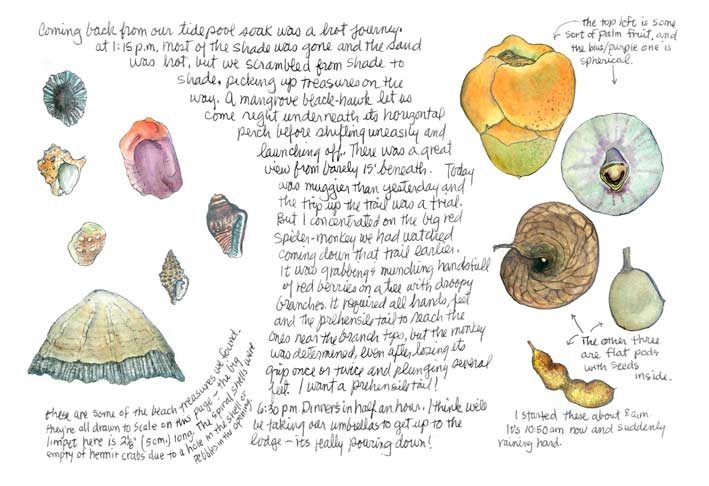 Coming back from our tidepool soak was a hot journey.
at 1:15 p.m. most of the shade was gone and the sand
was hot, but we scrambled from shade to
shade, picking up treasures on the
way. A mangrove black-hawk let us
come right underneath its horizontal
perch before shifting uneasily and
launching off. There was a great
view from barely 15' beneath. Today
was muggier than yesterday and
the trip up the trail was a trial.
But I concentrated on the big red
spider-monkey we had watched
coming down that trail earlier.
It was grabbing & munching handsfull
of red berries on a tree with droopy
branches. It required all hands, feet
and the prehensile tail to reach the
ones near the branch tips, but the monkey
was determined, even after losing its
grip once or twice and plunging several
feet. I want a prehensile tail!
6:30 pm Dinner's in half an hour. I think we'll
be taking our umbrellas to get up to the
lodge - it's really pouring down!
these are some of the beach treasures we found.
they're all drawn to scale on this page - the big
limpet here is 2⅛" (5cm) long. The spiral shells were
empty of hermit crabs due to a hole in the shell or
pebbles in the opening.
the top left is some
sort of palm fruit, and
the blue/purple one is
spherical.
The other three
are flat pods
with seeds
inside.
I started these about 8 am.
It's 10:50 am now and suddenly
raining hard.